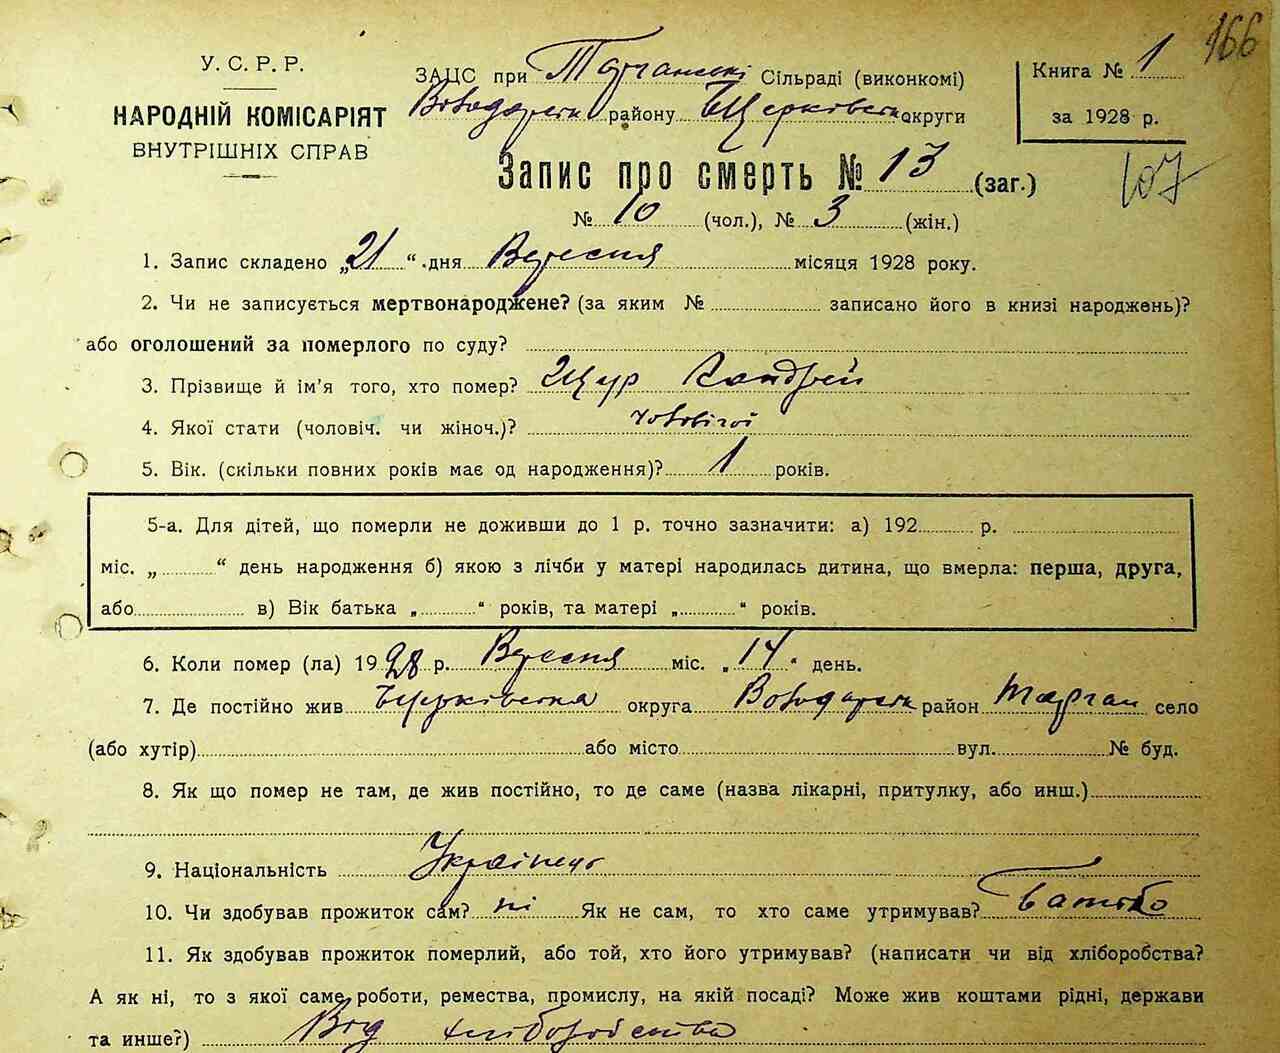 166
У. С. Р. Р.
НАРОДНІЙ КОМІСАРІЯТ
ВНУТРІШНІХ СПРАВ
ЗАЦС при Торчанські Сільраді (виконкомі)
Володарськ району Б.Церківська округи
Книга № 1
за 1928 р.
Запис про смерть № 13 (заг.)
107
№ 10 (чол.), № 3 (жін.)
1. Запис складено „21“ дня Вересня місяця 1928 року.
2. Чи не записується мертвонароджене? (за яким № записано його в книзі народжень)?
або оголошений за померлого по суду?
3. Прізвище й ім'я того, хто помер? Щур Андрей
4. Якої стати (чоловіч. чи жіноч.)? чоловічої
5. Вік. (скільки повних років має од народження)? 1 років.
5-а. Для дітей, що померли не доживши до 1 р. точно зазначити: а) 192 р.
міс. „ “ день народження б) якою з лічби у матері народилась дитина, що вмерла: перша, друга,
або в) Вік батька „ “ років, та матері „ “ років.
6. Коли помер (ла) 1928 р. Вересня міс. „14“ день.
7. Де постійно жив Б.Церківська округа Володарськ район Тарган село
(або хутір) або місто вул. № буд.
8. Як що помер не там, де жив постійно, то де саме (назва лікарні, притулку, або инш.)
9. Національність Українець
10. Чи здобував прожиток сам? ні Як не сам, то хто саме утримував? Батько
11. Як здобував прожиток померлий, або той, хто його утримував? (написати чи від хліборобства?
А як ні, то з якої саме роботи, ремества, промислу, на якій посаді? Може жив коштами рідні, держави
та инше?) Від хліборобства